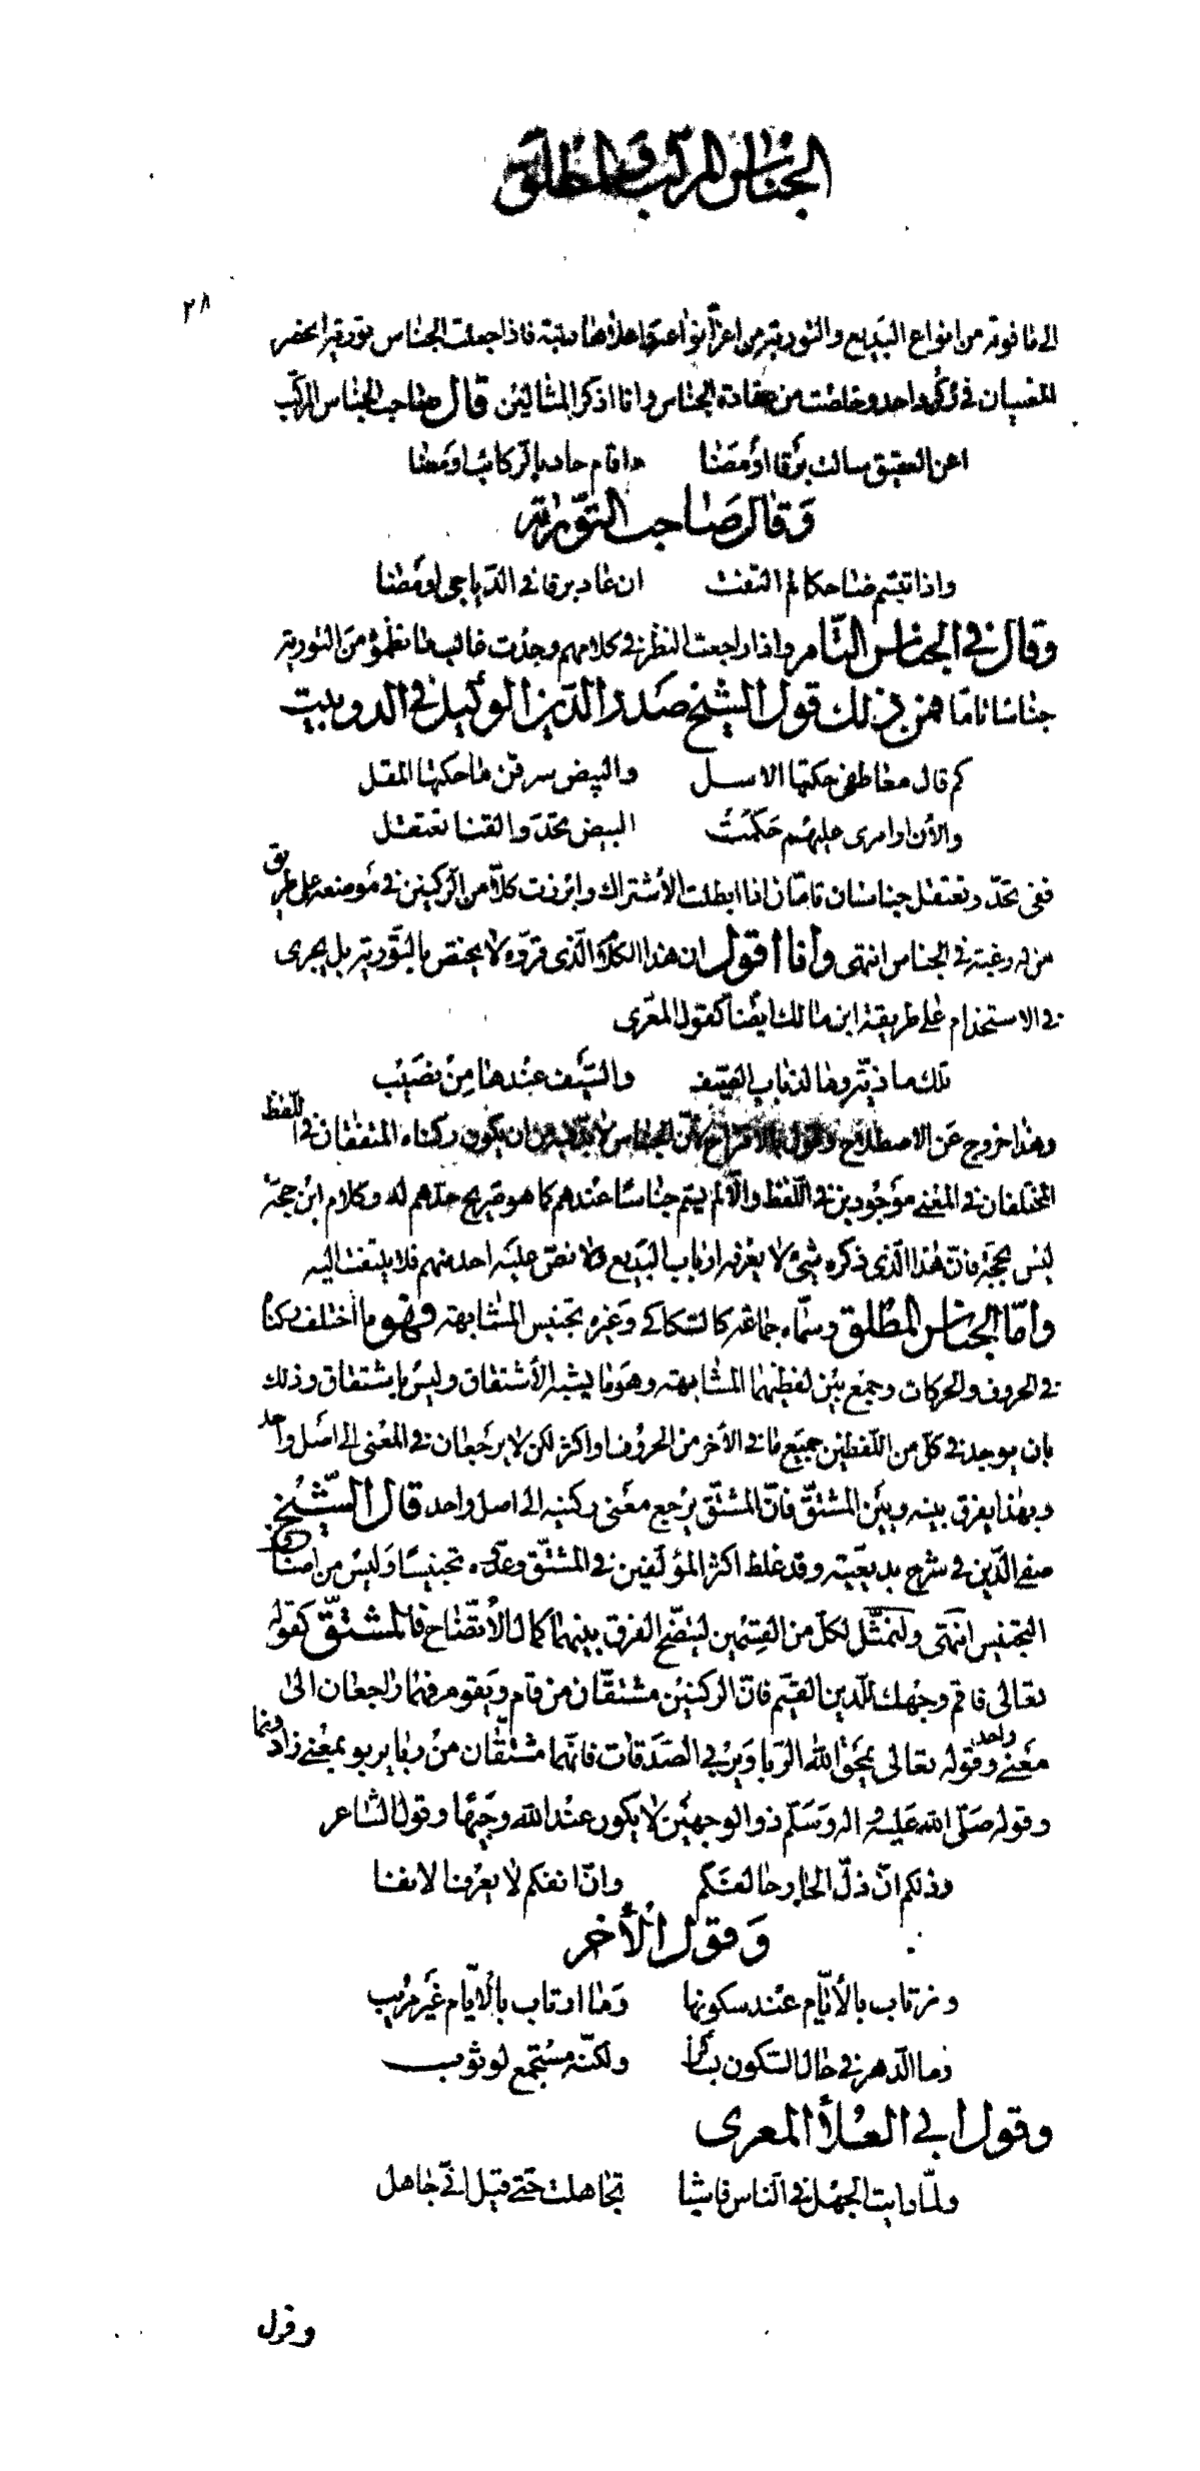 الجناس المركب والمطلق
٢٨
الى ما فوقه من انواع البديع والتورية من اعز انواعه واعلاها رتبة فاذا جعلت الجناس تورية انحصر
المعنيان في ركن واحد وخلصت من عقادة الجناس وانا اذكر المثالين قال صاحب الجناس المركب
اعن العقيق سالت برقا اومضا ءاقام حاد بالركائب اومضا
وقال صاحب التورية
واذا تبسم ضاحكا لم التفت ان عاد برقا في الدياجي اومضا
وقال في الجناس التام واذا راجعت النظر في كلامهم وجدت غالب ما نظموه من التورية
جناسا تاما فمن ذلك قول الشيخ صدر الدين الوكيل في الدوبيت
كم قال معاطفي حكتها الاسل والبيض سرقن ما حكتها المقل
والأن اوامرى عليهم حكمت البيض تحد والقنا تعتقل
ففى تحد وتعتقل جناسان تامان اذا ابطلت الأشتراك وابرزت كلا من الركنين في موضعه على طريق
من له رغبة في الجناس انتهى وانا اقول ان هذا الكلام الذى قرره لا يختص بالتورية بل يجرى
في الاستخدام على طريقة ابن مالك ايضا كقول المعرى
تلك ماذية وما لذباب الصيف والسيف عندها من نصيب
وهذا خروج عن الاصطلاح فان الجناس لا بد فيه من ان يكون ركناه المتفقان في اللفظ
المختلفان في المعنى موجودين في اللفظ والا لم يتم جناسا عندهم كما هو صريح حدهم له وكلام ابن حجة
ليس بحجة فان هذا الذى ذكره شئ لا يعرفه ارباب البديع ولا نص عليه احد منهم فلا يلتفت اليه
واما الجناس المطلق وسماه جماعة كالسكاكي وغيره تجنيس المشابهة فهو ما اختلف ركناه
في الحروف والحركات وجمع بين لفظيهما المشابهة وهو ما يشبه الأشتقاق وليس باشتقاق وذلك
بان يوجد في كل من اللفظين جميع ما في الأخر من الحروف او اكثر لكن لا يرجعان في المعنى الى اصل واحد
وبهذا يفرق بينه وبين المشتق فان المشتق يرجع معنى ركنيه الى اصل واحد قال الشيخ
صفى الدين في شرح بديعيته وقد غلط اكثر المؤلفين في المشتق وعدوه تجنيسا وليس من اصناف
التجنيس انتهى ولنمثل لكل من القسمين ليتضح الفرق بينهما كمال الأتضاح فالمشتق كقوله
تعالى فاقم وجهك للدين القيم فان الركنين مشتقان من قام ويقوم فهما راجعان الى
معنى واحد وقوله تعالى يمحق الله الربا ويربي الصدقات فانهما مشتقان من ربا يربو بمعنى زاد ونما
وقوله صلى الله عليه واله وسلم ذو الوجهين لا يكون عند الله وجيها وقول الشاعر
وذلكم ان ذل الجار حالفكم وان انفكم لا يعرف الانفا
وقول الأخر
ونرتاب بالأيام عند سكونها وما ارتاب بالايام غير مريب
وما الدهر في حال السكون بساكن ولكنه مستجمع لوثوب
وقول ابي العلأ المعرى
ولما رايت الجهل في الناس فاشيا تجاهلت حتى قيل اني جاهل
وقول